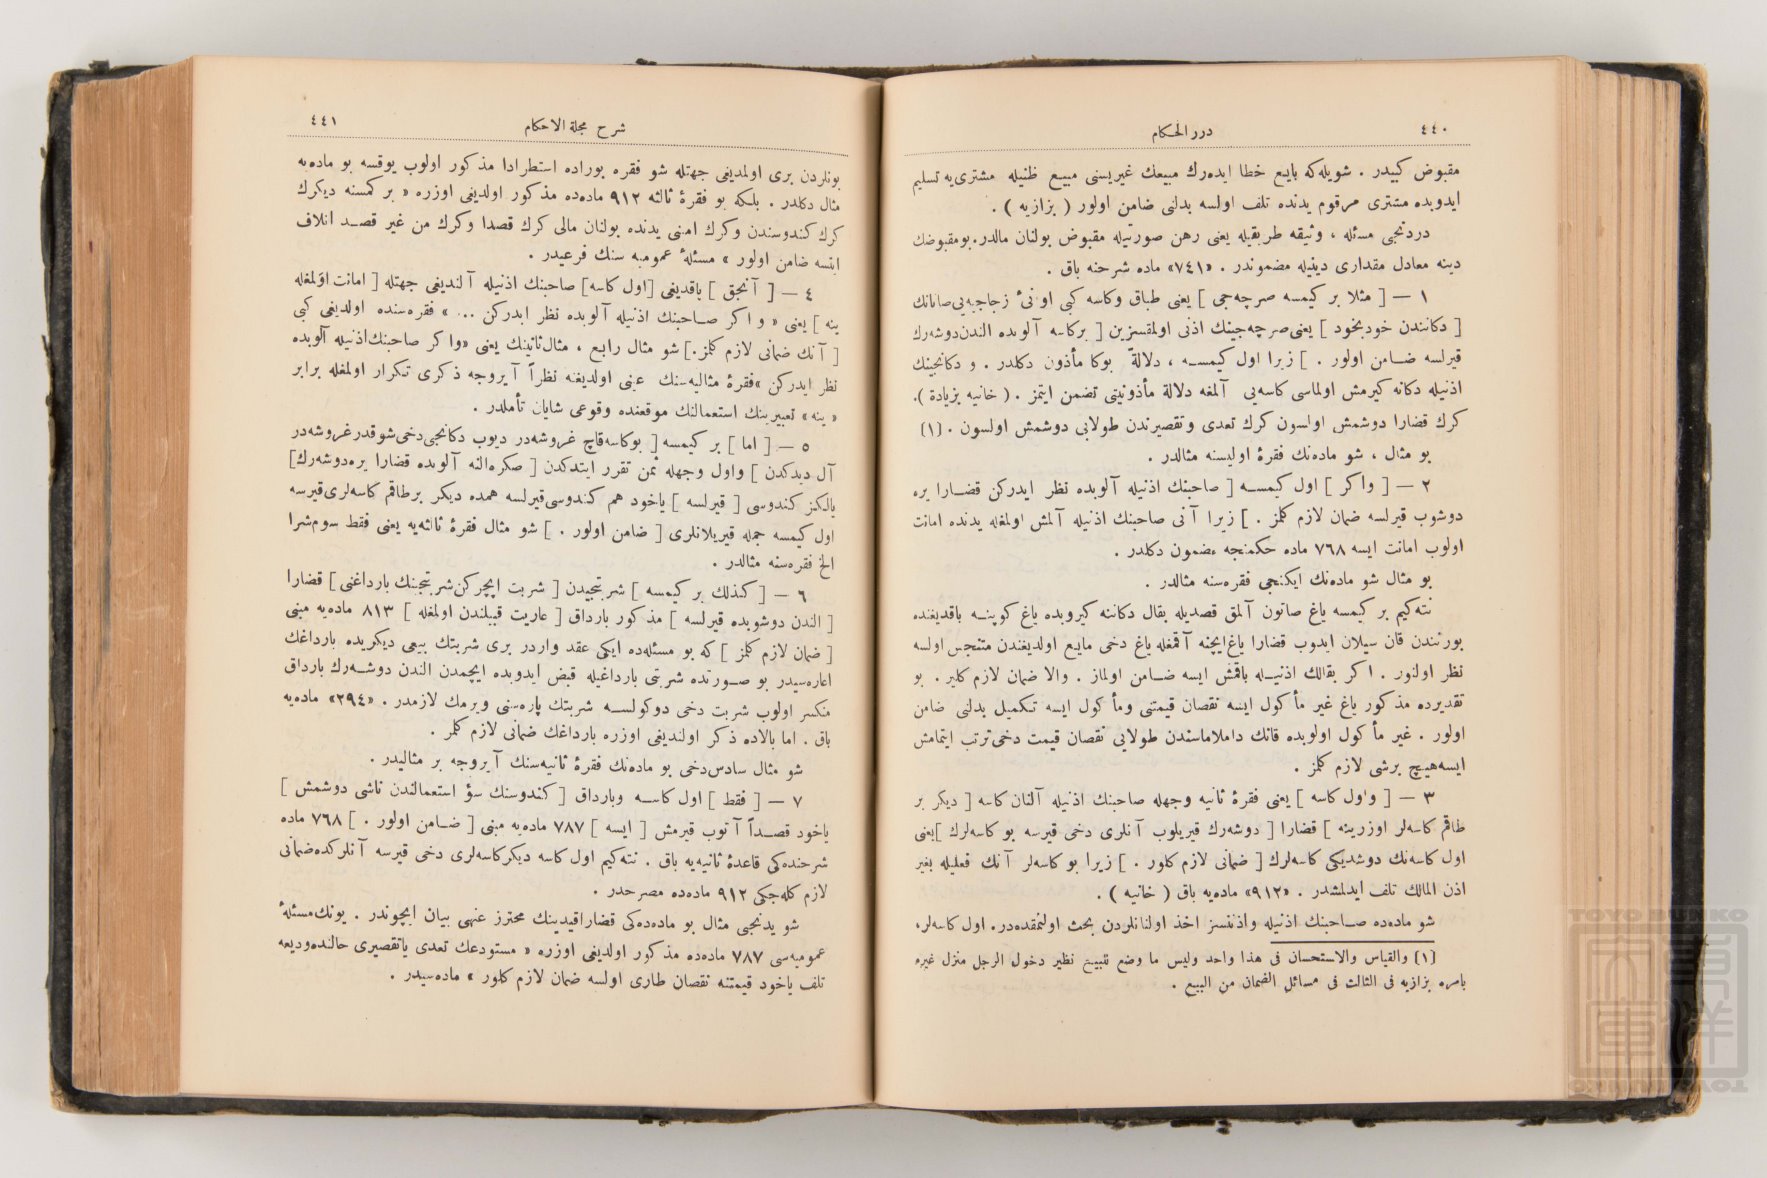 ٤٤٠
درر الحكام
مقبوض كبيدر . شويله‌كه بايع خطا ايده‌رك مبيعك غيريسنى مبيع ظنيله مشترى‌يه تسليم
ايدوبده مشترى مرقوم يدنده تلف اولسه بدلنى ضامن اولور ( بزازيه ) .
دردنجى مسئله ، وثيقه طريقيله يعنى رهن صورتيله مقبوض بولنان مالدر. بومقبوضك
دينه معادل مقدارى دينيله مضموندر . «٧٤١» ماده شرحنه باق .
١ — [ مثلا بر كيمسه صرچه‌جى ] يعنى طباق وكاسه كبى اوانئ زجاجيه‌يى صاتانك
[ دكانندن خودبخود ] يعنى صرچه‌جينك اذنى اولمقسزين [ بركاسه آلوبده الندن دوشه‌رك
قيرلسه ضامن اولور . ] زيرا اول كيمسه ، دلالةً بوكا مأذون دكلدر . و دكانجينك
اذنيله دكانه كيرمش اولماسى كاسه‌يى آلمغه دلالة مأذونيتى تضمن ايتمز . ( خانيه بزيادة ).
كرك قضارا دوشمش اولسون كرك تعدى وتقصيرندن طولايى دوشمش اولسون . (١)
بو مثال ، شو ماده‌نك فقرۀ اوليسنه مثالدر .
٢ — [ واكر ] اول كيمسه [ صاحبنك اذنيله آلوبده نظر ايدركن قضارا يره
دوشوب قيرلسه ضمان لازم كلمز . ] زيرا آنى صاحبنك اذنيله آلمش اولمغله يدنده امانت
اولوب امانت ايسه ٧٦٨ ماده حكمنجه مضمون دكلدر .
بو مثال شو ماده‌نك ايكنجى فقره‌سنه مثالدر .
نته‌كيم بر كيمسه ياغ صاتون آلمق قصديله بقال دكاننه كيروبده ياغ كوپنه باقديغنده
بورنندن قان سيلان ايدوب قضارا ياغ ايچنه آقمغله ياغ دخى مايع اولديغندن متنجس اولسه
نظر اولنور . اكر بقالك اذنيله باقمش ايسه ضامن اولماز . والا ضمان لازم كلير . بو
تقديرده مذكور ياغ غير مأكول ايسه نقصان قيمتنى ومأكول ايسه تكميل بدلنى ضامن
اولور . غير مأكول اولوبده قانك داملاماسندن طولايى نقصان قيمت دخى ترتب ايتمامش
ايسه هيچ برشى لازم كلمز .
٣ — [ واول كاسه ] يعنى فقرۀ ثانيه وجهله صاحبنك اذنيله آلنان كاسه [ ديكر بر
طاقم كاسه‌لر اوزرينه ] قضارا [ دوشه‌رك قيريلوب آنلرى دخى قيرسه بو كاسه‌لرك ] يعنى
اول كاسه‌نك دوشديكى كاسه‌لرك [ ضمانى لازم كلور . ] زيرا بو كاسه‌لر آنك فعليله بغير
اذن المالك تلف ايدلمشدر . «٩١٢» ماده‌يه باق ( خانيه ) .
شو ماده‌ده صاحبنك اذنيله واذنسز اخذ اولنانلردن بحث اولنمقده‌در. اول كاسه‌لر،
(١) والقياس والاستحسان فى هذا واحد وليس ما وضع تنبيح نظير دخول الرجل منزل غيره
بامره بزازيه فى الثالث فى مسائل الضمان من البيع .
٤٤١
شرح مجلة الاحكام
بونلردن برى اولمديغى جهتله شو فقره بوراده استطرادا مذكور اولوب يوقسه بو ماده‌يه
مثال دكلدر . بلكه بو فقرۀ ثالثه ٩١٢ ماده‌ده مذكور اولديغى اوزره « بر كمسنه ديكرك
كرك كندوسندن وكرك امينى يدنده بولنان مالى كرك قصدا وكرك من غير قصد اتلاف
ايتسه ضامن اولور » مسئلۀ عموميه سنك فرعيدر .
٤ — [ آنجق ] باقديغى [ اول كاسه ] صاحبنك اذنيله آلنديغى جهتله [ امانت اولمغله
ينه ] يعنى « و اكر صاحبنك اذنيله آلوبده نظر ايدركن ... » فقره‌سنده اولديغى كبى
[ آنك ضمانى لازم كلمز. ] شو مثال رابع ، مثال ثانينك يعنى «واكر صاحبنك اذنيله آلوبده
نظر ايدركن »فقرۀ مثاليه‌سنك عينى اولديغنه نظراً آيروجه ذكرى تكرار اولمغله برابر
« ينه » تعبيرينك استعمالنك موقعنده وقوعى شايان تأملدر .
٥ — [ اما ] بر كيمسه [ بوكاسه قاچ غروشه‌در ديوب دكانجى دخى شوقدر غروشه‌در
آل ديدكدن ] واول وجهله ثمن تقرر ايتدكدن [ صكره النه آلوبده قضارا يره دوشه‌رك]
يالكز كندوسى [ قيرلسه ] ياخود هم كندوسى قيرلسه همده ديكر برطاقم كاسه‌لرى قيرسه
اول كيمسه جمله قيريلانلرى [ ضامن اولور . ] شو مثال فقرۀ ثالثه‌يه يعنى فقط سوم شرا
الخ فقره‌سنه مثالدر .
٦ — [ كذلك بر كيمسه ] شربتجيدن [ شربت ايچركن شربتجينك بارداغنى ] قضارا
[ الندن دوشوبده قيرلسه ] مذكور بارداق [ عاريت قبيلندن اولمغله ] ٨١٣ ماده‌يه مبنى
[ ضمان لازم كلمز ] كه بو مسئله‌ده ايكى عقد واردر برى شربتك بيعى ديكريده بارداغك
اعاره‌سيدر بو صورتده شربتى بارداغيله قبض ايدوبده ايچمدن الندن دوشه‌رك بارداق
منكسر اولوب شربت دخى دوكولسه شربتك پاره‌سنى ويرمك لازمدر . «٢٩٤» ماده‌يه
باق . اما بالاده ذكر اولنديغى اوزره بارداغك ضمانى لازم كلمز .
شو مثال سادس دخى بو ماده‌نك فقرۀ ثانيه‌سنك آيروجه بر مثاليدر .
٧ — [ فقط ] اول كاسه وبارداق [ كندوسنك سؤ استعمالندن ناشى دوشمش ]
ياخود قصداً آتوب قيرمش [ ايسه ] ٧٨٧ ماده‌يه مبنى [ ضامن اولور . ] ٧٦٨ ماده
شرحنده‌كى قاعدۀ ثانيه‌يه باق . نته‌كيم اول كاسه ديكر كاسه‌لرى دخى قيرسه آنلركده ضمانى
لازم كله‌جكى ٩١٢ ماده‌ده مصرحدر .
شو يدنجى مثال بو ماده‌ده‌كى قضارا قيدينك محترز عنهى بيان ايچوندر . بونك مسئلۀ
عموميه‌سى ٧٨٧ ماده‌ده مذكور اولديغى اوزره « مستودعك تعدى ياتقصيرى حالنده وديعه
تلف ياخود قيمتنه نقصان طارى اولسه ضمان لازم كلور » ماده‌سيدر .
TOYO BUNKO
東洋文庫